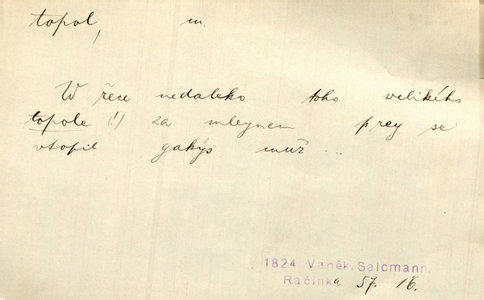 topol, m.
W řece nedaleko toho velikého
topole (!) za mleynem prey se
vtopil gakýs muž...
1824 Vaněk, Salcmann.
Račinka 57. 16.